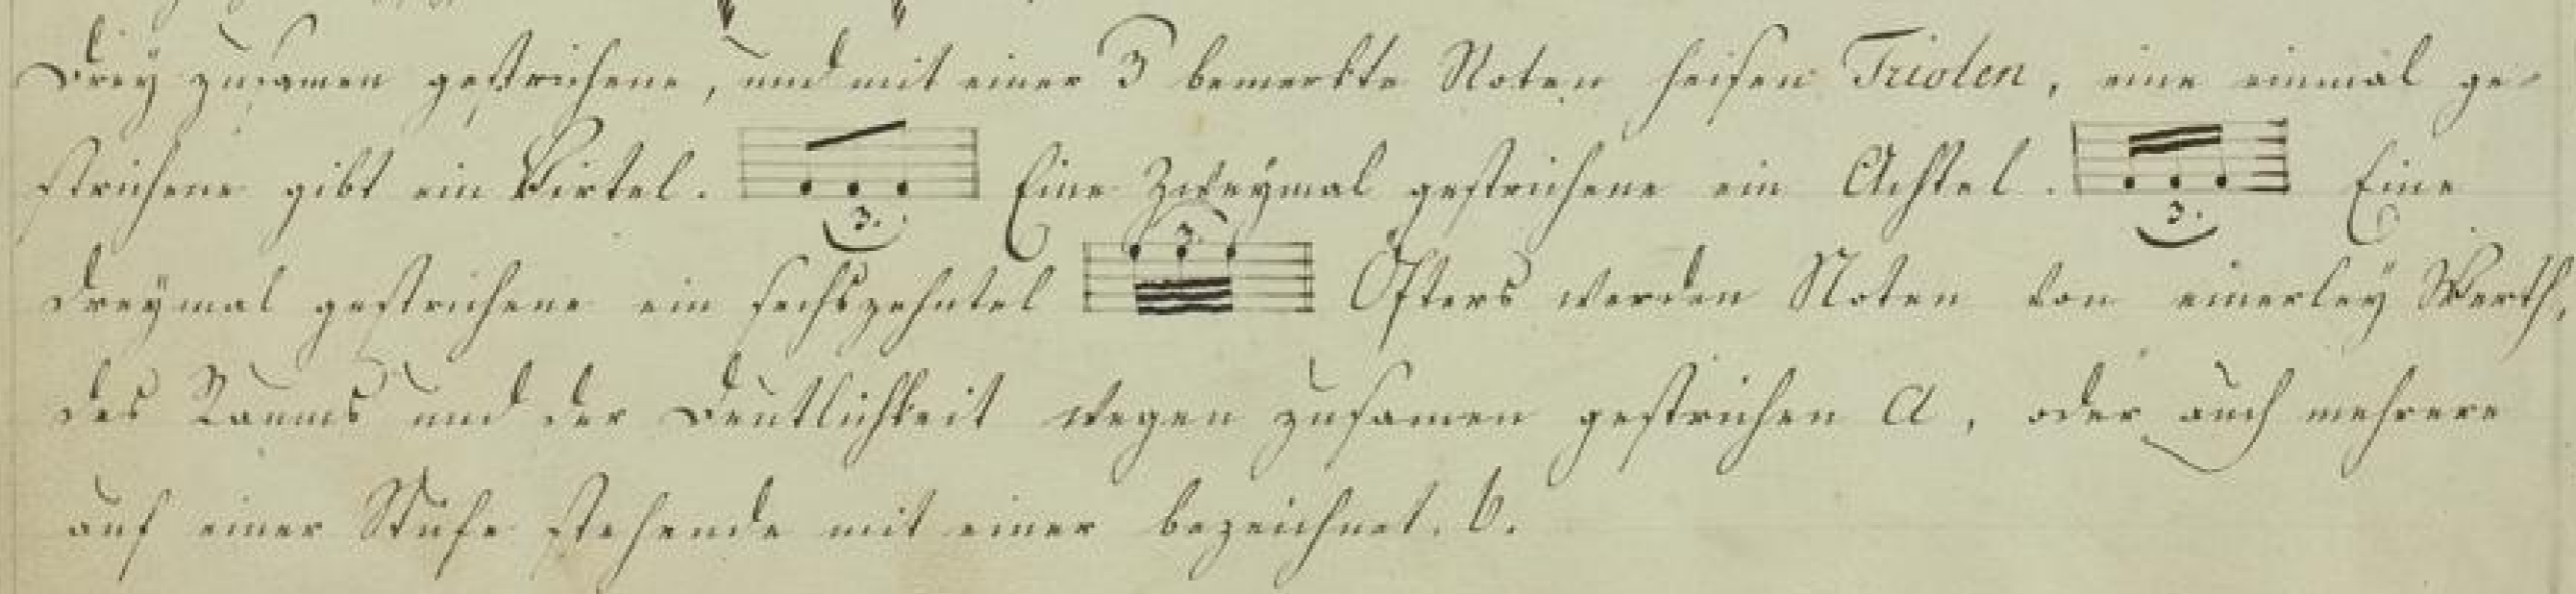 Drey zusamen gestrichene, und mit einer 3 bemerkte Noten heisen Triolen, eine einmal ge-
strichene gibt ein Virtel. 3. Eine Zweÿmal gestrichene ein Achtel. 3. Eine
dreÿmal gestrichene ein sechszehntel 3. Öfters werden Noten von einerleÿ Werth,
des Raums und der Deutlichkeit wegen zusamen gestrichen a, oder auch mehrere
auf einer Stufe stehende mit einer bezeichnet. b.